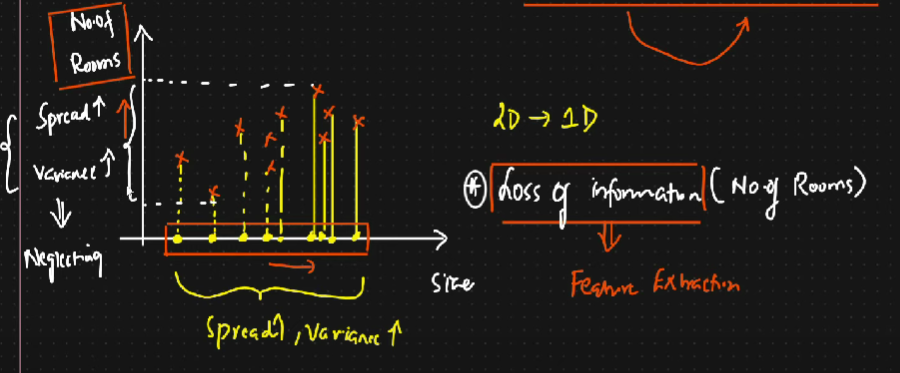 No.of
Rooms
Spread↑
Variance↑
⇓
Neglecting
Size
Spread↑, Variance↑
2D → 1D
* Loss of information (No of Rooms)
⇓
Feature Extraction